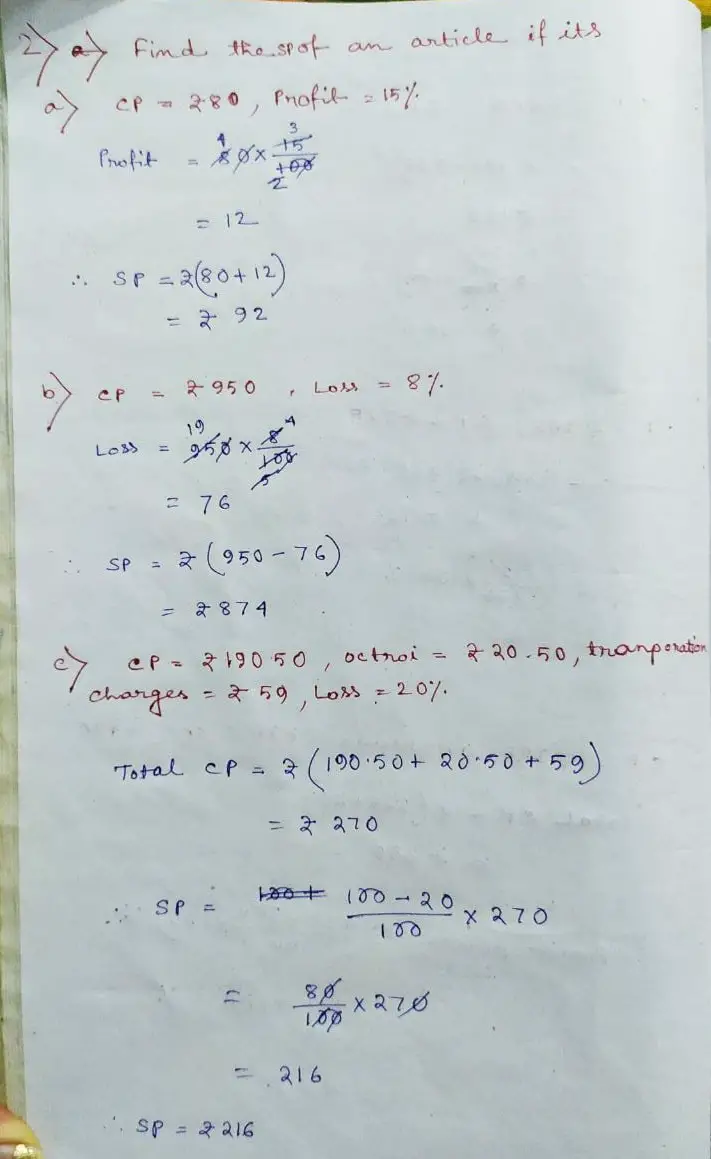 2) a) Find the sp of an article if its
a) CP = ₹80, Profit = 15%.
Profit = 80 × 15/100
4 3 2
= 12
∴ SP = ₹(80+12)
= ₹ 92
b) CP = ₹950, Loss = 8%.
Loss = 950 × 8/100
19 4 5
= 76
∴ SP = ₹(950-76)
= ₹874
c) CP = ₹190.50, octroi = ₹20.50, tranporation
charges = ₹59, Loss = 20%.
Total CP = ₹(190.50+ 20.50 + 59)
= ₹ 270
∴ SP = 100+ 100-20/100 × 270
= 80/100 × 270
= 216
∴ SP = ₹216